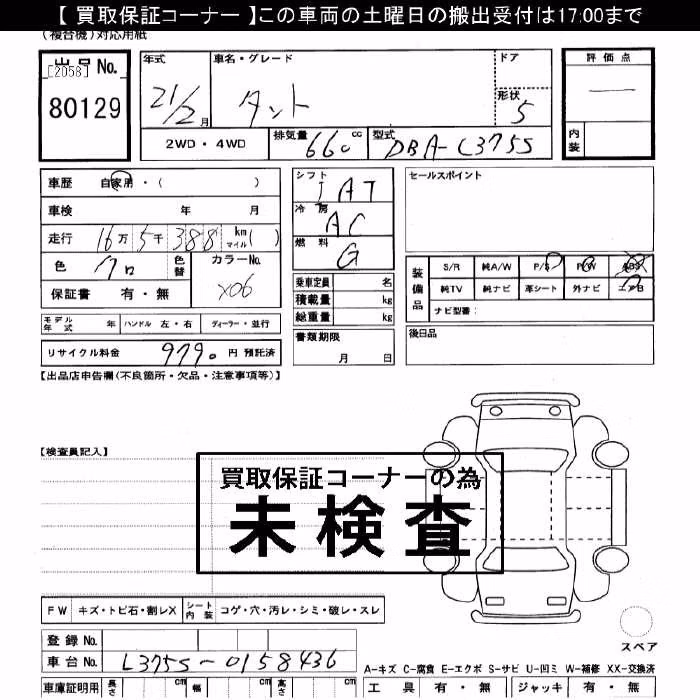 【 買取保証コーナー 】この車両の土曜日の搬出受付は17:00まで
(複合機)対応用紙
出品No.
[2058]
80129
年式
21/2月
車名・グレード
タント
ドア
形状
5
評価点
—
内装
2WD・4WD
排気量
660cc
型式
DBA-L375S
車歴 自家用・( )
車検 年 月
走行 16万5千388km マイル( )
色 クロ
色替
カラーNo.
X06
保証書 有・無
シフト
IAT
冷房
AC
燃料
G
乗車定員 名
積載量 kg
総重量 kg
セールスポイント
装備品
S/R 純A/W P/S P/W ABS
純TV 純ナビ 革シート 外ナビ エアB
ナビ型番:
モデル年式 年 ハンドル 左・右 ディーラー・並行
書類期限
月 日
後日品
リサイクル料金 9790円 預託済
【出品店申告欄(不良箇所・欠品・注意事項等)】
【検査員記入】
買取保証コーナーの為
未検査
FW キズ・トビ石・割レX シート内装 コゲ・穴・汚レ・シミ・破レ・スレ
スペア
登録No.
車台No. L375S-0158436
A-キズ C-腐食 E-エクボ S-サビ U-凹ミ W-補修 XX-交換済
車庫証明用 長さ cm 幅 cm 高さ cm
工具 有・無 ジャッキ 有・無